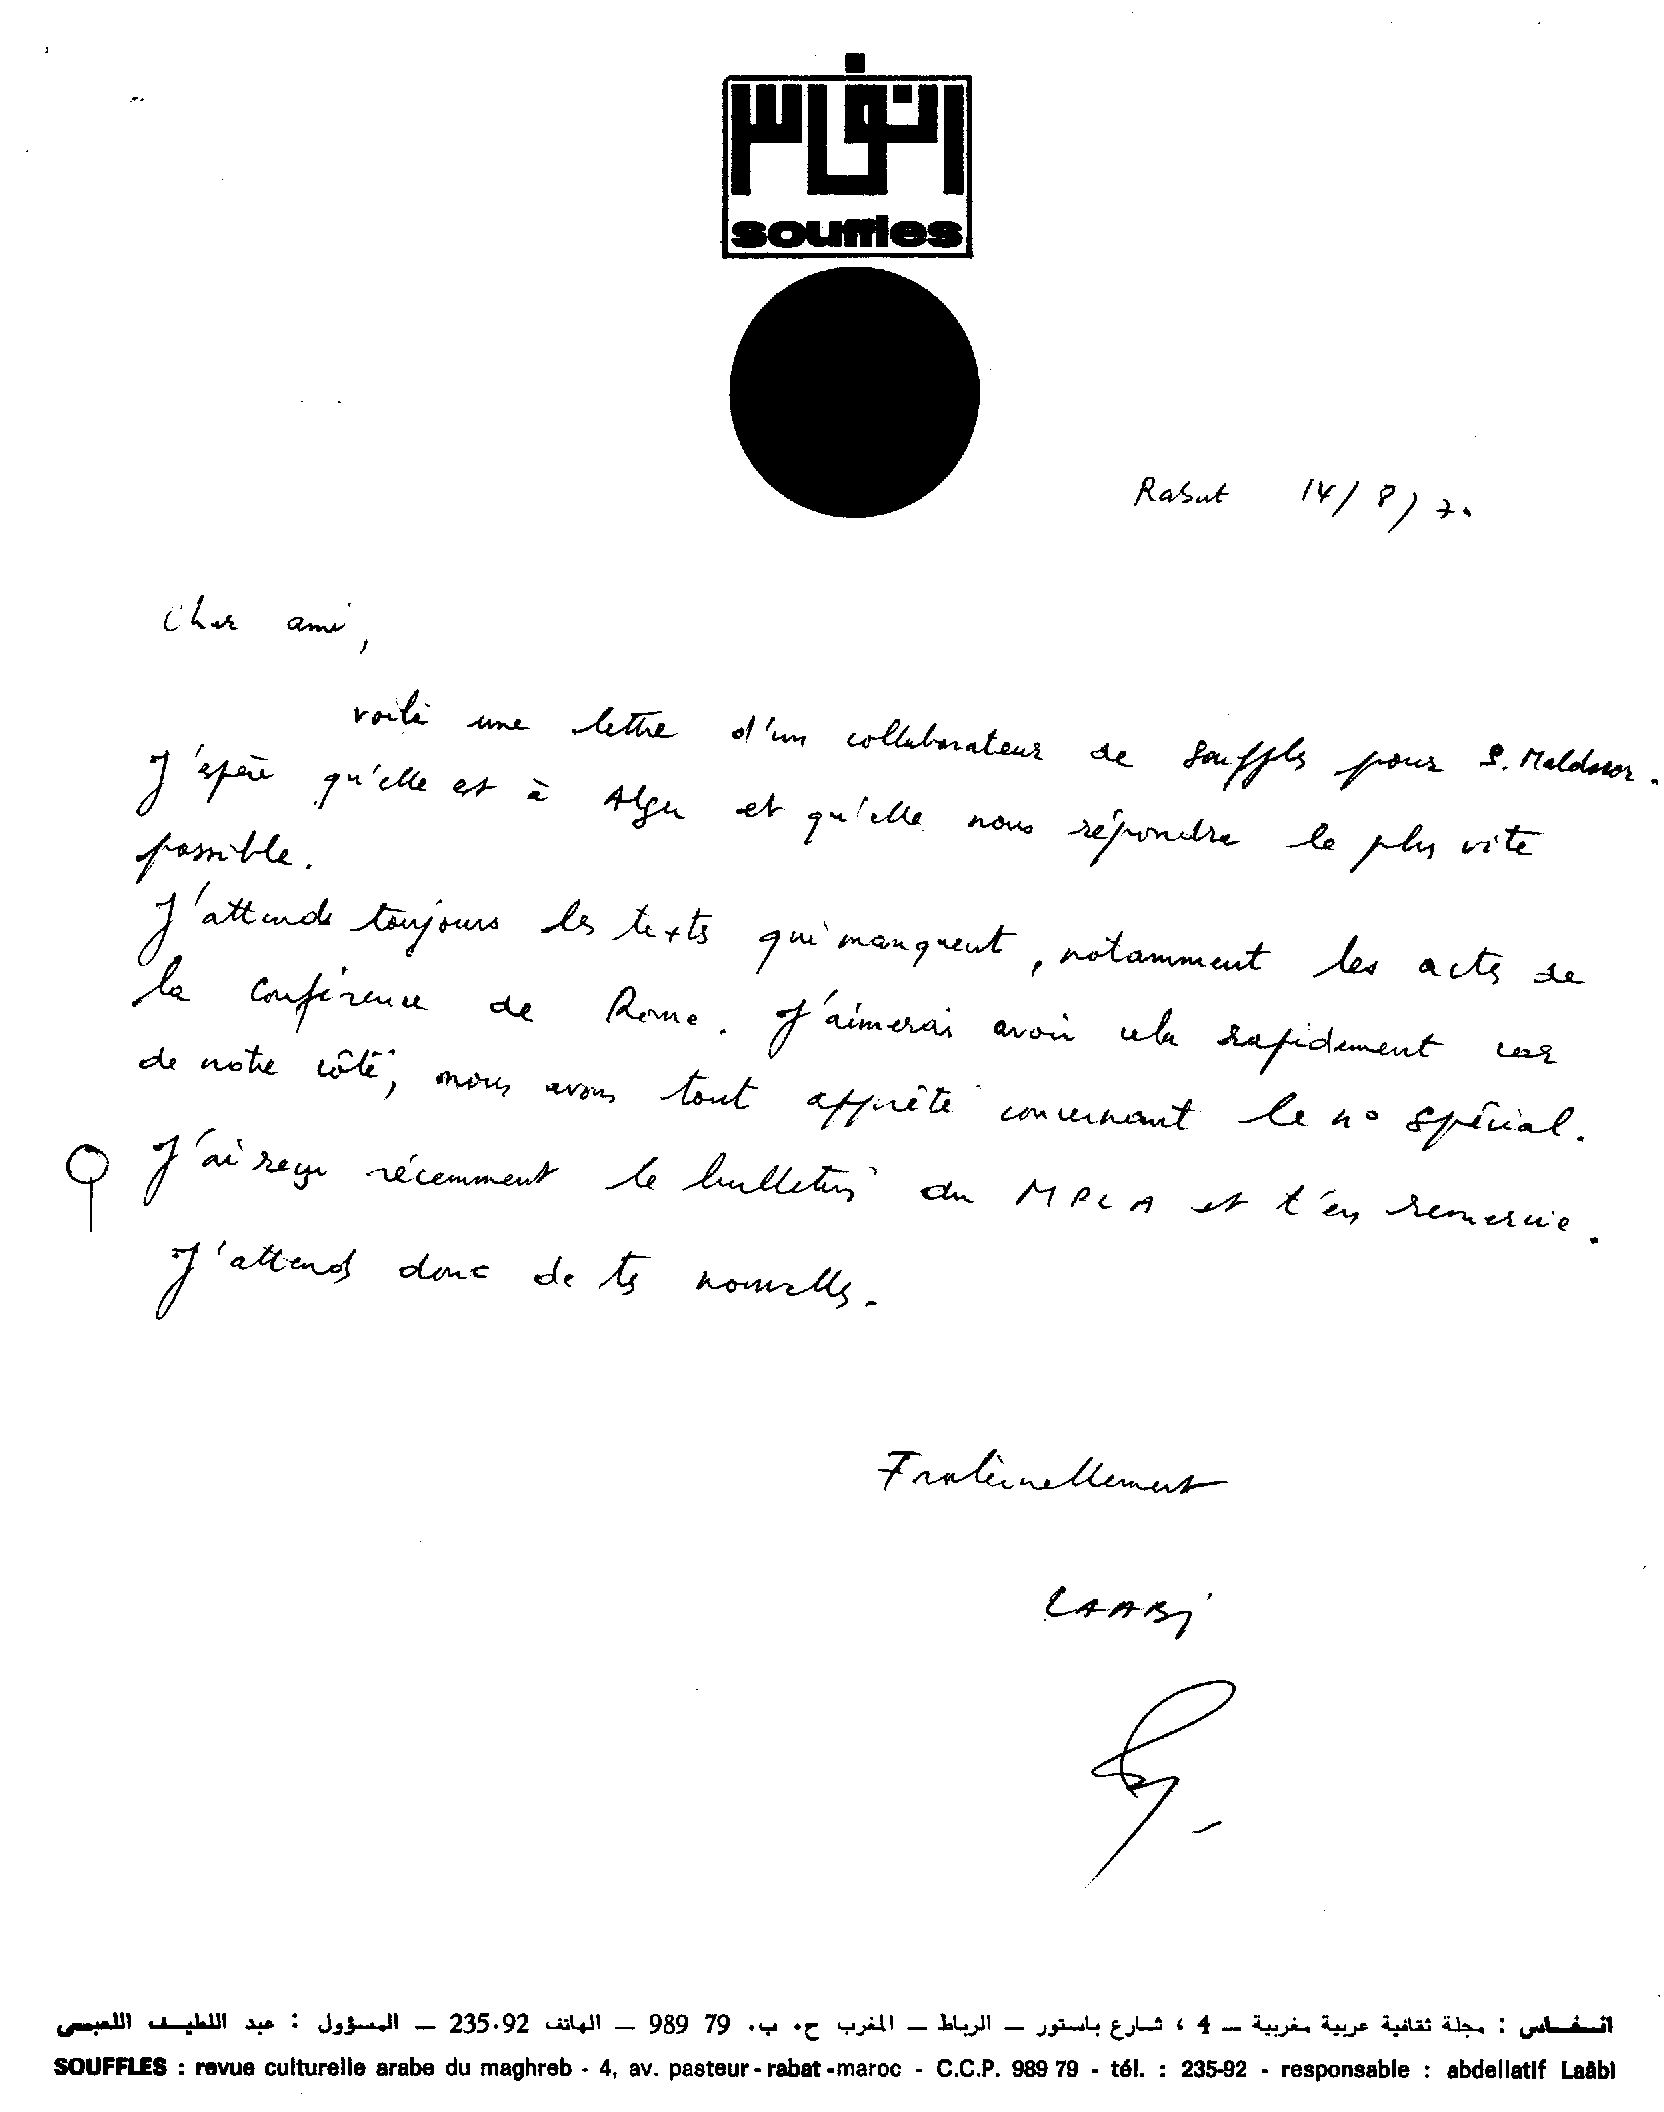 انفاس
souffles
Rabat 14/8/70
Cher ami,
voilà une lettre d'un collaborateur de Souffles pour S. Maldoror.
J'espère qu'elle est à Alger et qu'elle nous répondra le plus vite
possible.
J'attends toujours les textes qui manquent, notamment les actes de
la conférence de Rome. J'aimerais avoir cela rapidement car
de notre côté, nous avons tout apprêté concernant le n° spécial.
J'ai reçu récemment le bulletin du MPLA et t'en remercie.
J'attends donc de tes nouvelles.
Fraternellement
LAABI
انفاس : مجلة ثقافية عربية مغربية – 4 ، شارع باستور – الرباط – المغرب ح. ب. 79 989 – الهاتف 92-235 – المسؤول : عبد اللطيف اللعبي
SOUFFLES : revue culturelle arabe du maghreb - 4, av. pasteur - rabat - maroc - C.C.P. 989 79 - tél. : 235-92 - responsable : abdellatif Laâbi